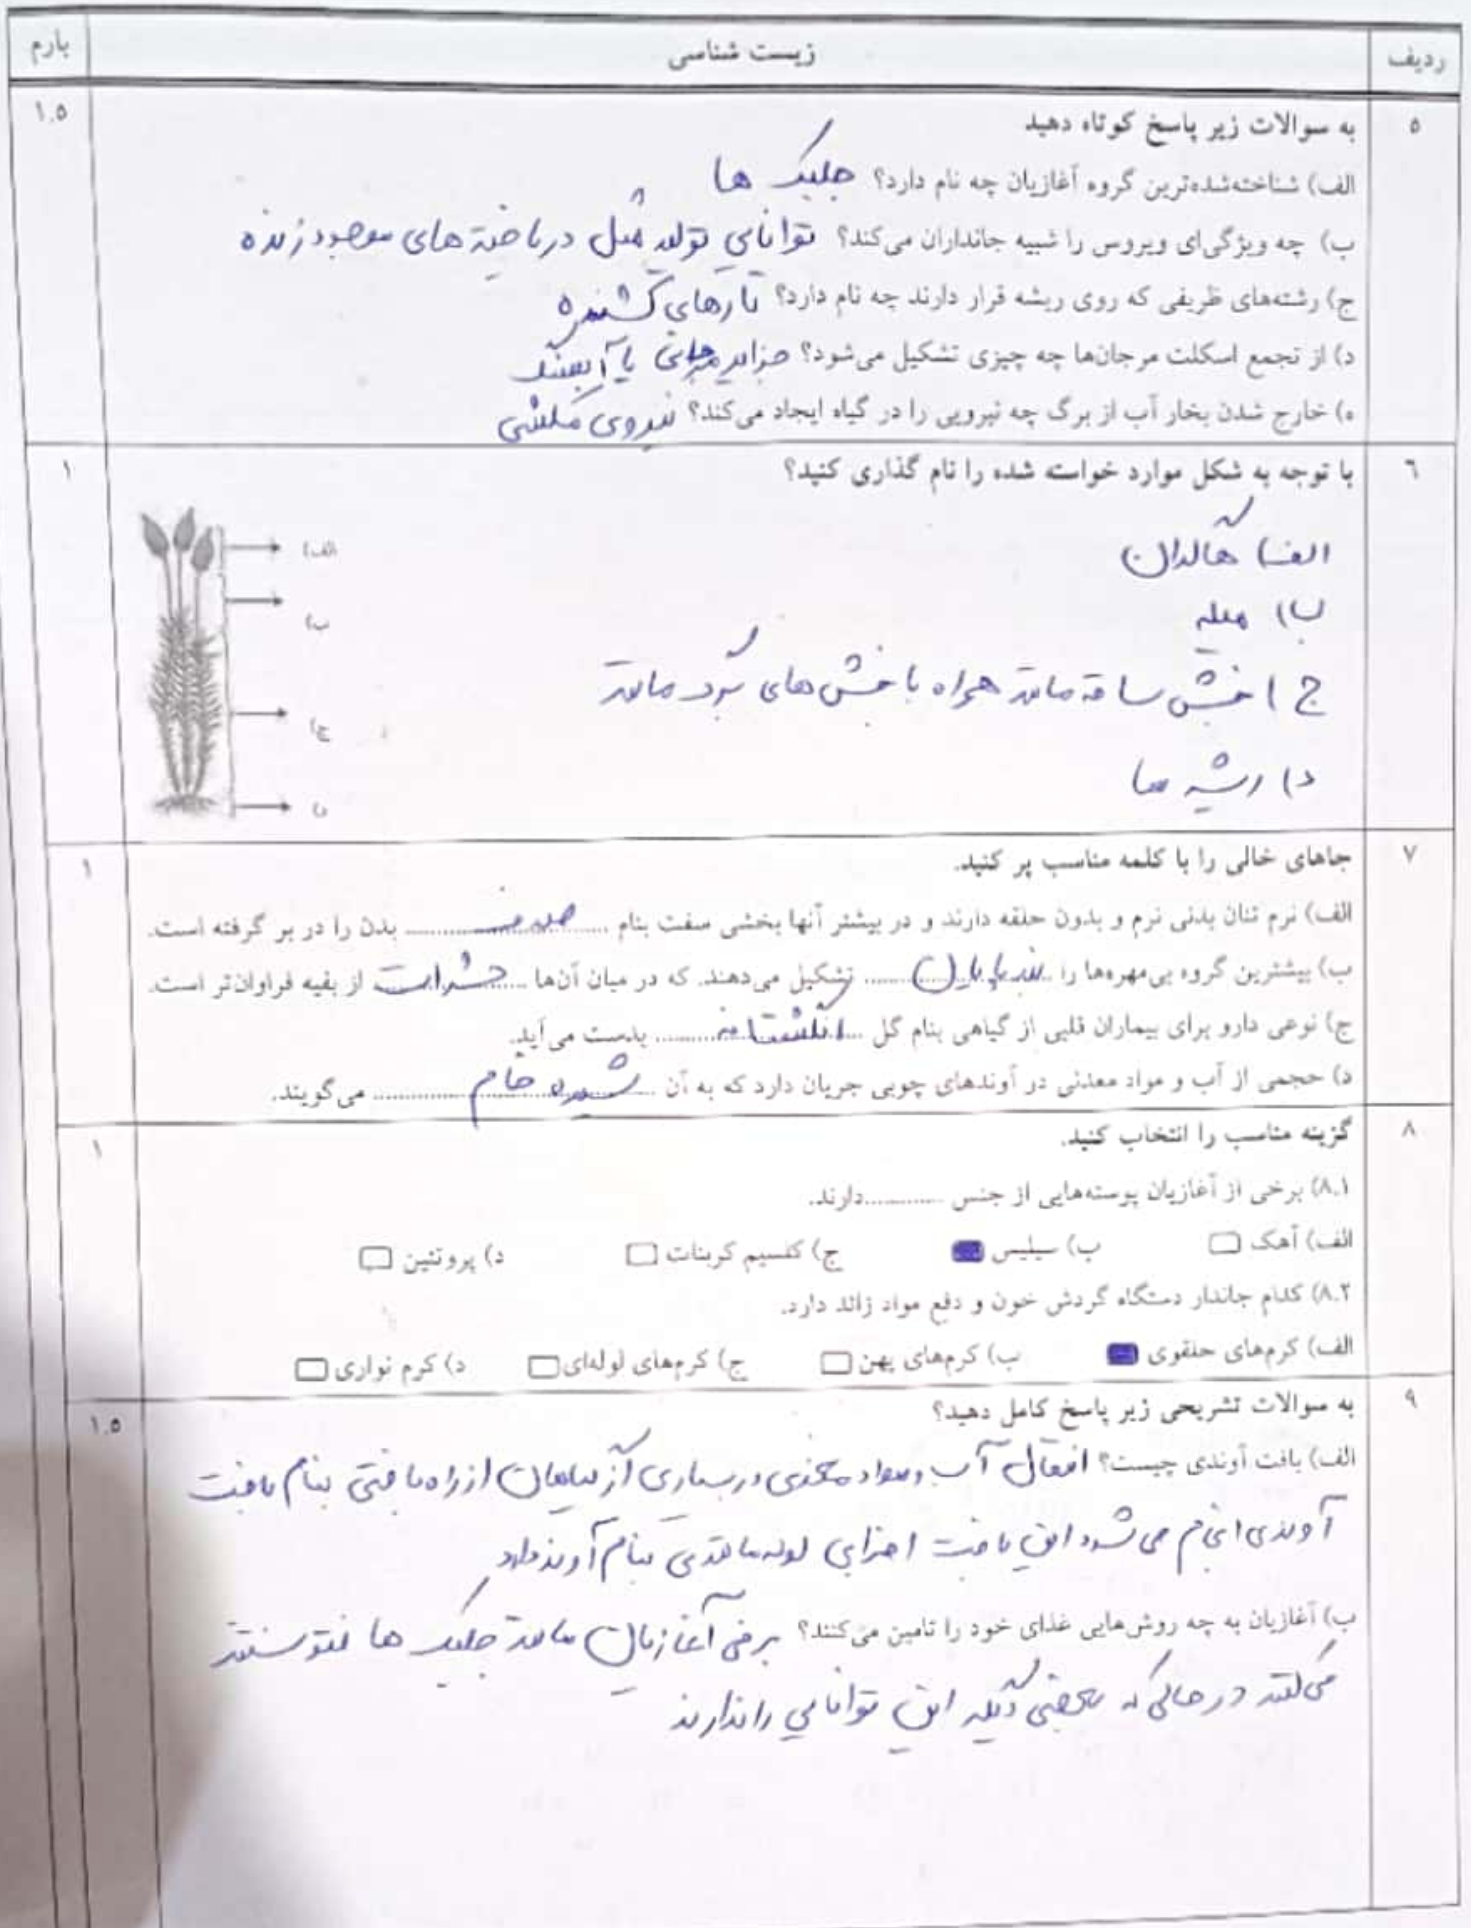 ردیف زیست شناسی بارم
۵ به سوالات زیر پاسخ کوتاه دهید ۱.۵
الف) شناخته‌شده‌ترین گروه آغازیان چه نام دارد؟ جلبک ها
ب) چه ویژگی‌ای ویروس را شبیه جانداران می‌کند؟ توانایی تولید مثل در یاخته های موجود زنده
ج) رشته‌های ظریفی که روی ریشه قرار دارند چه نام دارد؟ تارهای کشنده
د) از تجمع اسکلت مرجان‌ها چه چیزی تشکیل می‌شود؟ جزایر مرجانی یا آبسنگ
ه) خارج شدن بخار آب از برگ چه نیرویی را در گیاه ایجاد می‌کند؟ نیروی مکشی
۶ با توجه به شکل موارد خواسته شده را نام گذاری کنید؟ ۱
الف) هاگدان
ب) میله
ج) بخش ساقه مانند همراه با بخش های برگ مانند
د) ریشه ها
الف)
ب)
ج)
د)
۷ جاهای خالی را با کلمه مناسب پر کنید. ۱
الف) نرم تنان بدنی نرم و بدون حلقه دارند و در بیشتر آنها بخشی سفت بنام صدف بدن را در بر گرفته است.
ب) بیشترین گروه بی‌مهره‌ها را بندپایان تشکیل می‌دهند. که در میان آن‌ها حشرات از بقیه فراوان‌تر است.
ج) نوعی دارو برای بیماران قلبی از گیاهی بنام گل انگشتانه بدست می‌آید.
د) حجمی از آب و مواد معدنی در آوندهای چوبی جریان دارد که به آن شیره خام می‌گویند.
۸ گزینه مناسب را انتخاب کنید. ۱
۸.۱) برخی از آغازیان پوسته‌هایی از جنس ............دارند.
الف) آهک ب) سیلیس ج) کلسیم کربنات د) پروتئین
۸.۲) کدام جاندار دستگاه گردش خون و دفع مواد زائد دارد.
الف) کرم‌های حلقوی ب) کرم‌های پهن ج) کرم‌های لوله‌ای د) کرم نواری
۹ به سوالات تشریحی زیر پاسخ کامل دهید؟ ۱.۵
الف) بافت آوندی چیست؟ انتقال آب و مواد مغذی در بسیاری از گیاهان از راه بافتی بنام بافت
آوندی انجام می شود این بافت اجزایی لوله مانندی بنام آوند دارد
ب) آغازیان به چه روش‌هایی غذای خود را تامین می‌کنند؟ برخی آغازیان مانند جلبک ها فتوسنتز
می کنند در حالی که بعضی دیگر این توانایی را ندارند